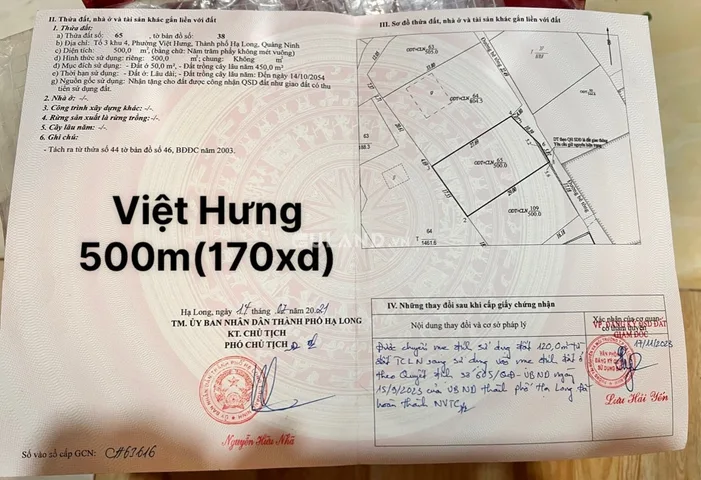 II. Thửa đất, nhà ở và tài sản khác gắn liền với đất
1. Thửa đất:
a) Thửa đất số: 65 , tờ bản đồ số: 38
b) Địa chỉ: Tổ 3 khu 4, Phường Việt Hưng, Thành phố Hạ Long, Quảng Ninh
c) Diện tích: 500,0 m², (bằng chữ: Năm trăm phẩy không mét vuông)
d) Hình thức sử dụng: riêng: 500,0 m²; chung: Không m²
đ) Mục đích sử dụng: - Đất ở 50,0 m², - Đất trồng cây lâu năm 450,0 m²
e) Thời hạn sử dụng: - Đất ở: Lâu dài; - Đất trồng cây lâu năm: Đến ngày 14/10/2054
g) Nguồn gốc sử dụng: Nhận tặng cho đất được công nhận QSD đất như giao đất có thu
tiền sử dụng đất.
2. Nhà ở: -/-
3. Công trình xây dựng khác: -/-
4. Rừng sản xuất là rừng trồng: -/-
5. Cây lâu năm: -/-
6. Ghi chú:
- Tách ra từ thửa số 44 tờ bản đồ số 46, BĐĐC năm 2003.
III. Sơ đồ thửa đất, nhà ở và tài sản khác gắn liền với đất
63
505.0
ODT+CLN 64
804.3
Đường bê tông
ODT+CLN 65
500.0
ODT+CLN 109
500.0
64
T 1461.6
Đường bê tông
Việt Hưng
500m(170xd)
GULAND.vn
Hạ Long, ngày 14 tháng 07 năm 2021
TM. ỦY BAN NHÂN DÂN THÀNH PHỐ HẠ LONG
KT. CHỦ TỊCH
PHÓ CHỦ TỊCH
Nguyễn Hữu Nhã
Số vào sổ cấp GCN: CH63616
IV. Những thay đổi sau khi cấp giấy chứng nhận
Nội dung thay đổi và cơ sở pháp lý
Xác nhận của cơ quan
có thẩm quyền
VP. ĐĂNG KÝ QSD ĐẤT
GIÁM ĐỐC
17/11/2023
Được chuyển mục đích sử dụng đất 120,0 m² từ
đất TCLN sang sử dụng vào mục đích đất ở
theo Quyết định số 605/QĐ-UBND ngày
15/9/2023 của UBND thành phố Hạ Long. Đã
hoàn thành NVTC
Lưu Hải Yến